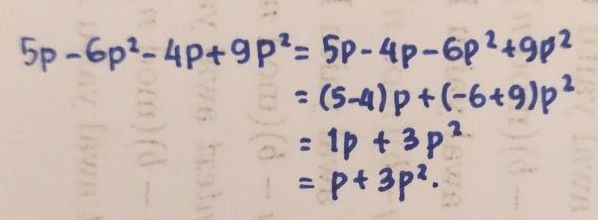 5p-6p²-4p+9p²= 5p-4p-6p²+9p²
= (5-4)p+(-6+9)p²
= 1p + 3p²
= p+3p².